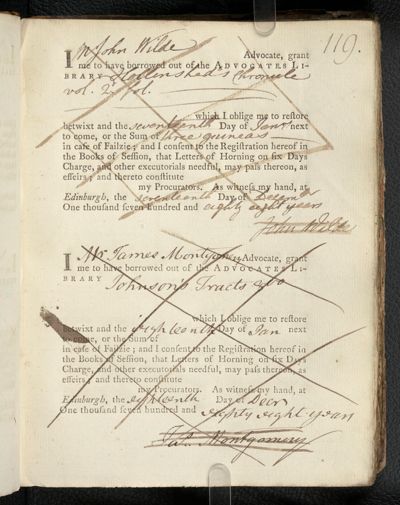 119.
I Mr John Wilde Advocate, grant
me to have borrowed out of the ADVOCATES LI-
BRARY Hollensheds Chronicle
vol. 2d fol.
which I oblige me to restore
betwixt and the seventeenth Day of Janry next
to come, or the Sum of three guineas
in case of Failzie; and I consent to the Registration hereof in
the Books of Session, that Letters of Horning on six Days
Charge, and other executorials needful, may pass thereon, as
effeirs; and thereto constitute
my Procurators. As witness my hand, at
Edinburgh, the seventeenth Day of December
One thousand seven hundred and eighty eight years
John Wilde
I Mr James Montgomery Advocate, grant
me to have borrowed out of the ADVOCATES LI-
BRARY Johnsons Tracts
which I oblige me to restore
betwixt and the eighteenth Day of Jan next
to come, or the Sum of
in case of Failzie; and I consent to the Registration hereof in
the Books of Session, that Letters of Horning on six Days
Charge, and other executorials needful, may pass thereon, as
effeirs; and thereto constitute
my Procurators. As witness my hand, at
Edinburgh, the eighteenth Day of Decr
One thousand seven hundred and eighty eight years
Montgomery